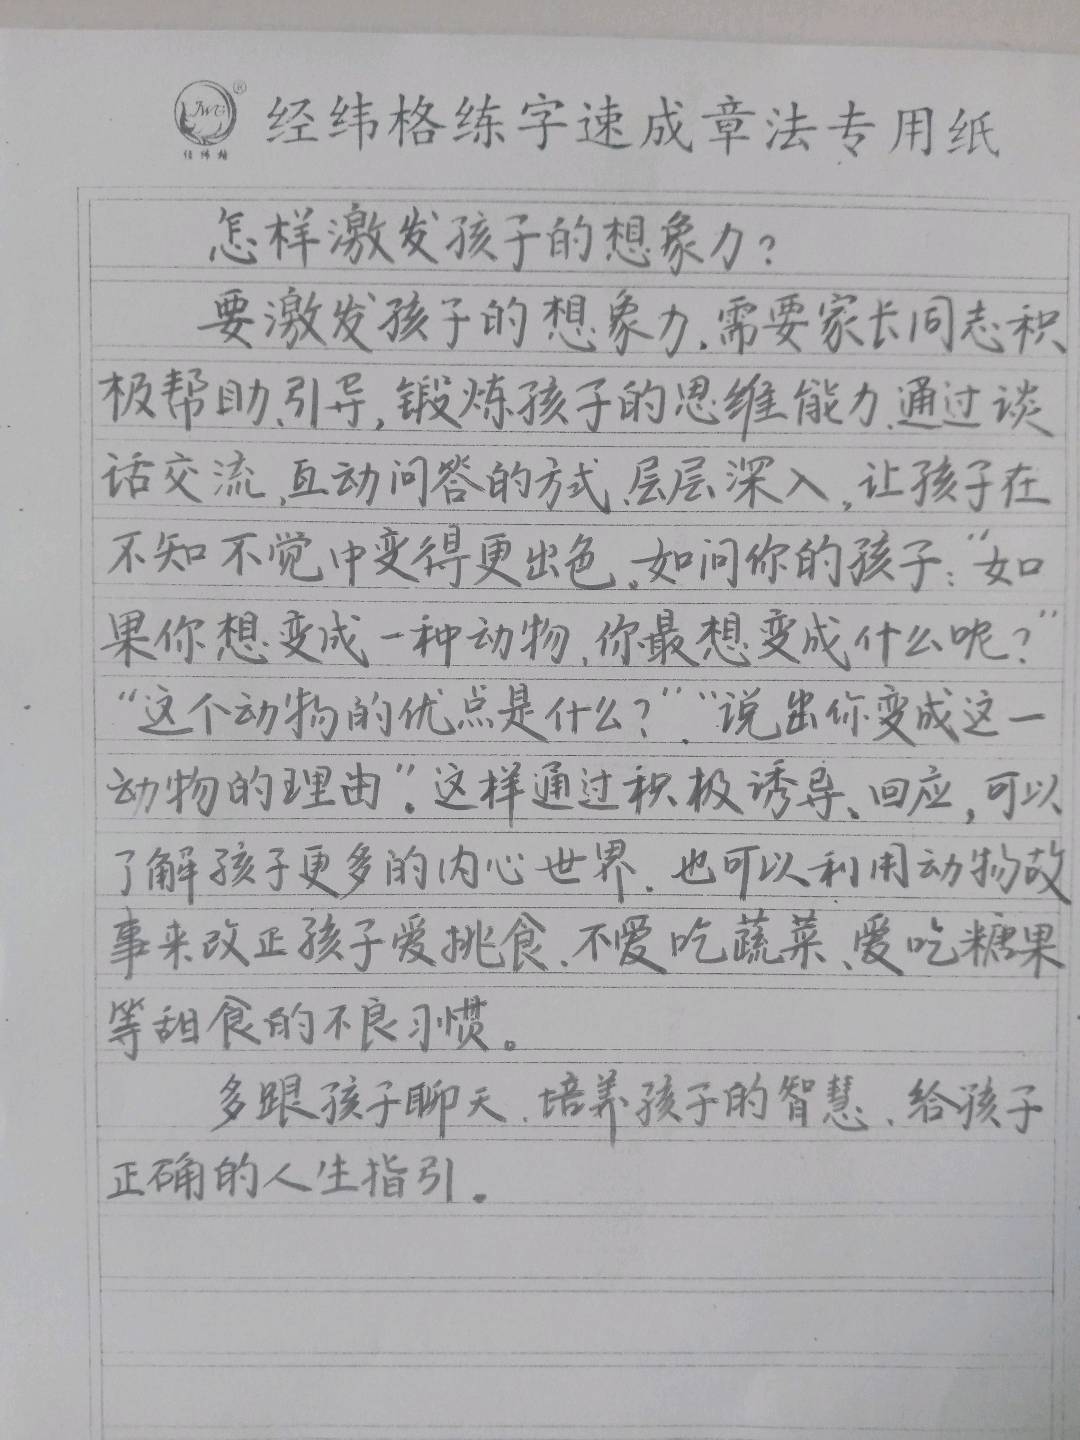 JWG®
经纬格
经纬格练字速成章法专用纸
怎样激发孩子的想象力?
要激发孩子的想象力,需要家长同志积
极帮助、引导,锻炼孩子的思维能力,通过谈
话交流,互动问答的方式,层层深入,让孩子在
不知不觉中变得更出色。如问你的孩子:“如
果你想变成一种动物,你最想变成什么呢?”
“这个动物的优点是什么?”.“说出你变成这一
动物的理由”。这样通过积极诱导、回应,可以
了解孩子更多的内心世界.也可以利用动物故
事来改正孩子爱挑食、不爱吃蔬菜、爱吃糖果
等甜食的不良习惯。
多跟孩子聊天,培养孩子的智慧,给孩子
正确的人生指引。